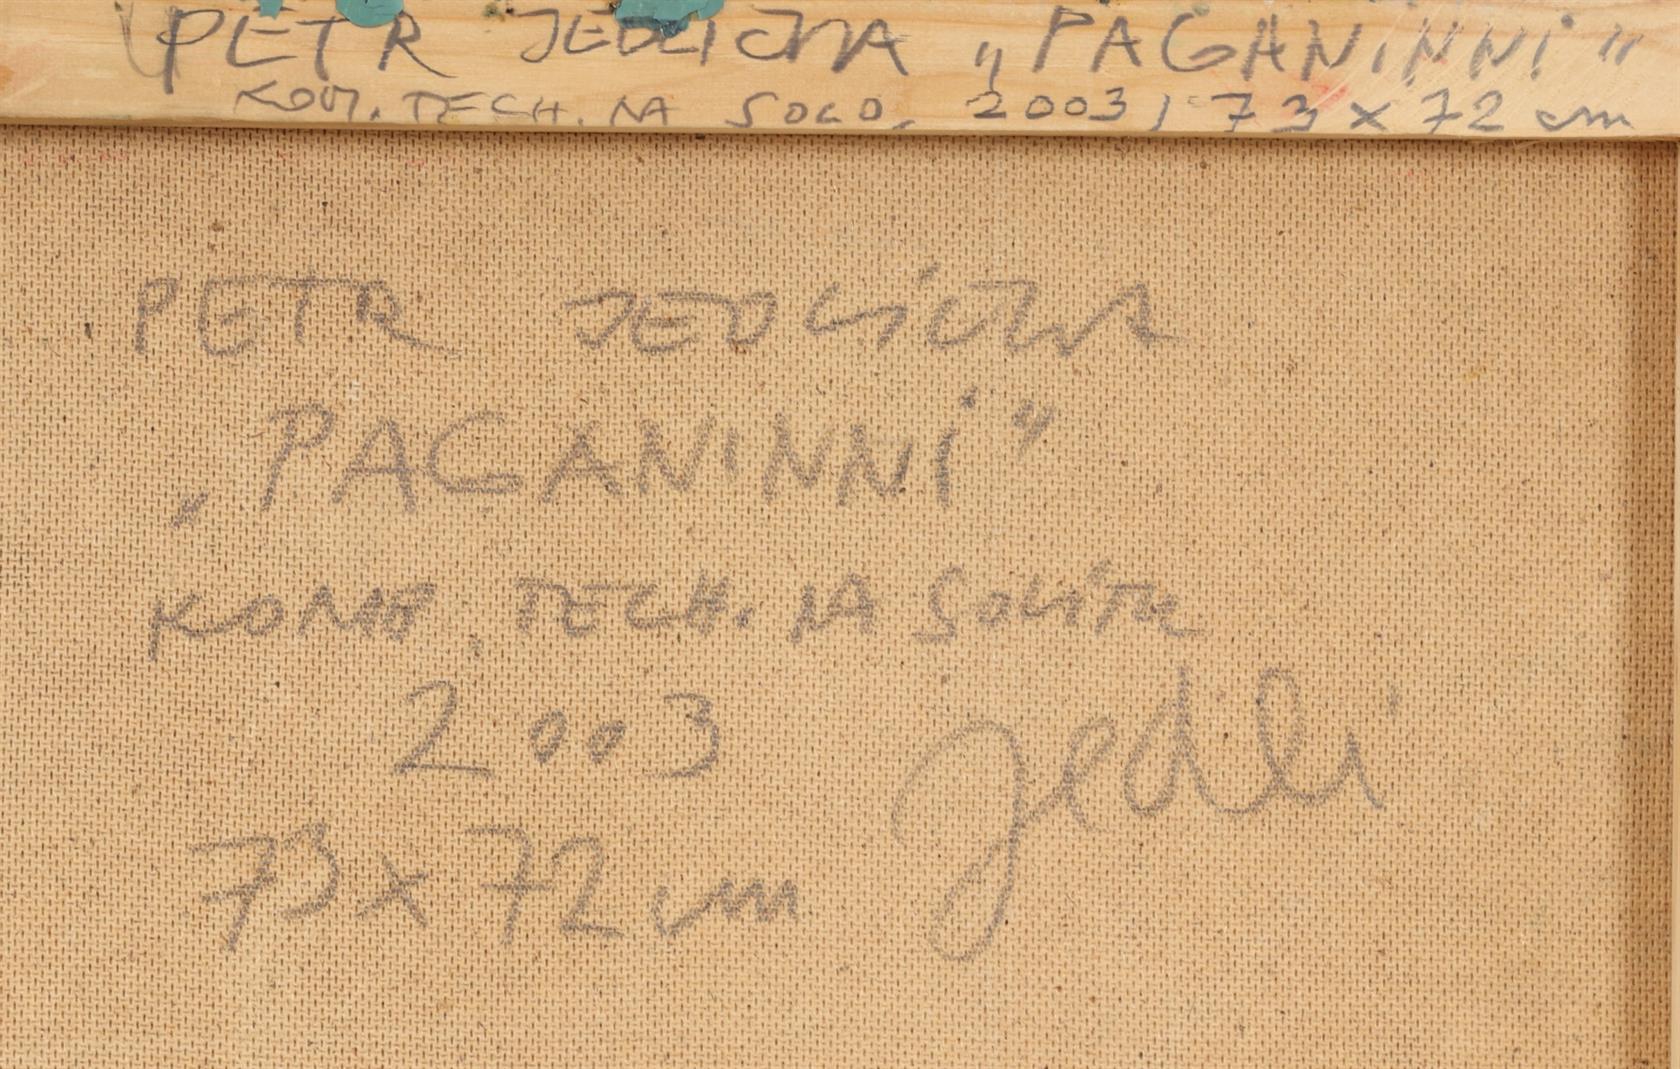 PETR JEDLIČKA „PAGANINNI"
KOM. TECH. NA SOLO, 2003, 73 x 72 cm
PETR JEDLIČKA
„PAGANINNI"
KOMB. TECH. NA SOLITU
2003
Jedli
73 x 72 cm